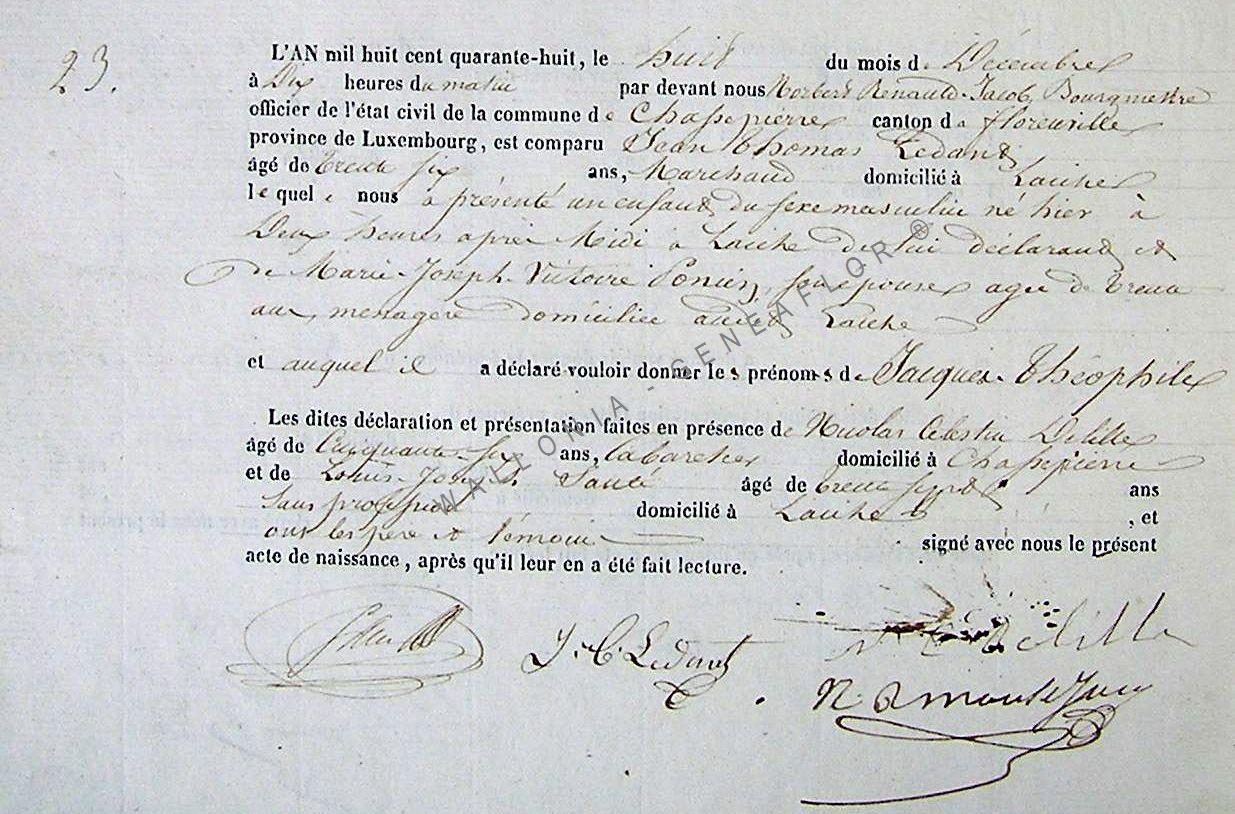 23.
L'AN mil huit cent quarante-huit, le huit du mois de Décembre
à Dix heures du matin par devant nous Norbert Renauld-Jacob, Bourgmestre
officier de l'état civil de la commune de Chassepierre canton de florenville
province de Luxembourg, est comparu Jean Thomas Ledant
âgé de trente six ans, Marchand domicilié à Laiche
lequel nous a présenté un enfant du sexe masculin né hier à
Deux heures après Midi à Laiche de lui déclarant et
de Marie-Joseph-Victoire son épouse agée de trente
ans, menagère domiciliée audit Laiche
et auquel il a déclaré vouloir donner les prénoms de Jacques-Théophile
Les dites déclaration et présentation faites en présence de Nicolas Celestin Delille
âgé de Cinquante-six ans, Cabaretier domicilié à Chassepierre
et de Louis-Joseph âgé de trente sept ans
Sans profession domicilié à Laiche, et
ont les père et témoin signé avec nous le présent
acte de naissance, après qu'il leur en a été fait lecture.
J. T. Ledant
Delille
WALLORIA - GENEAFLOR ®